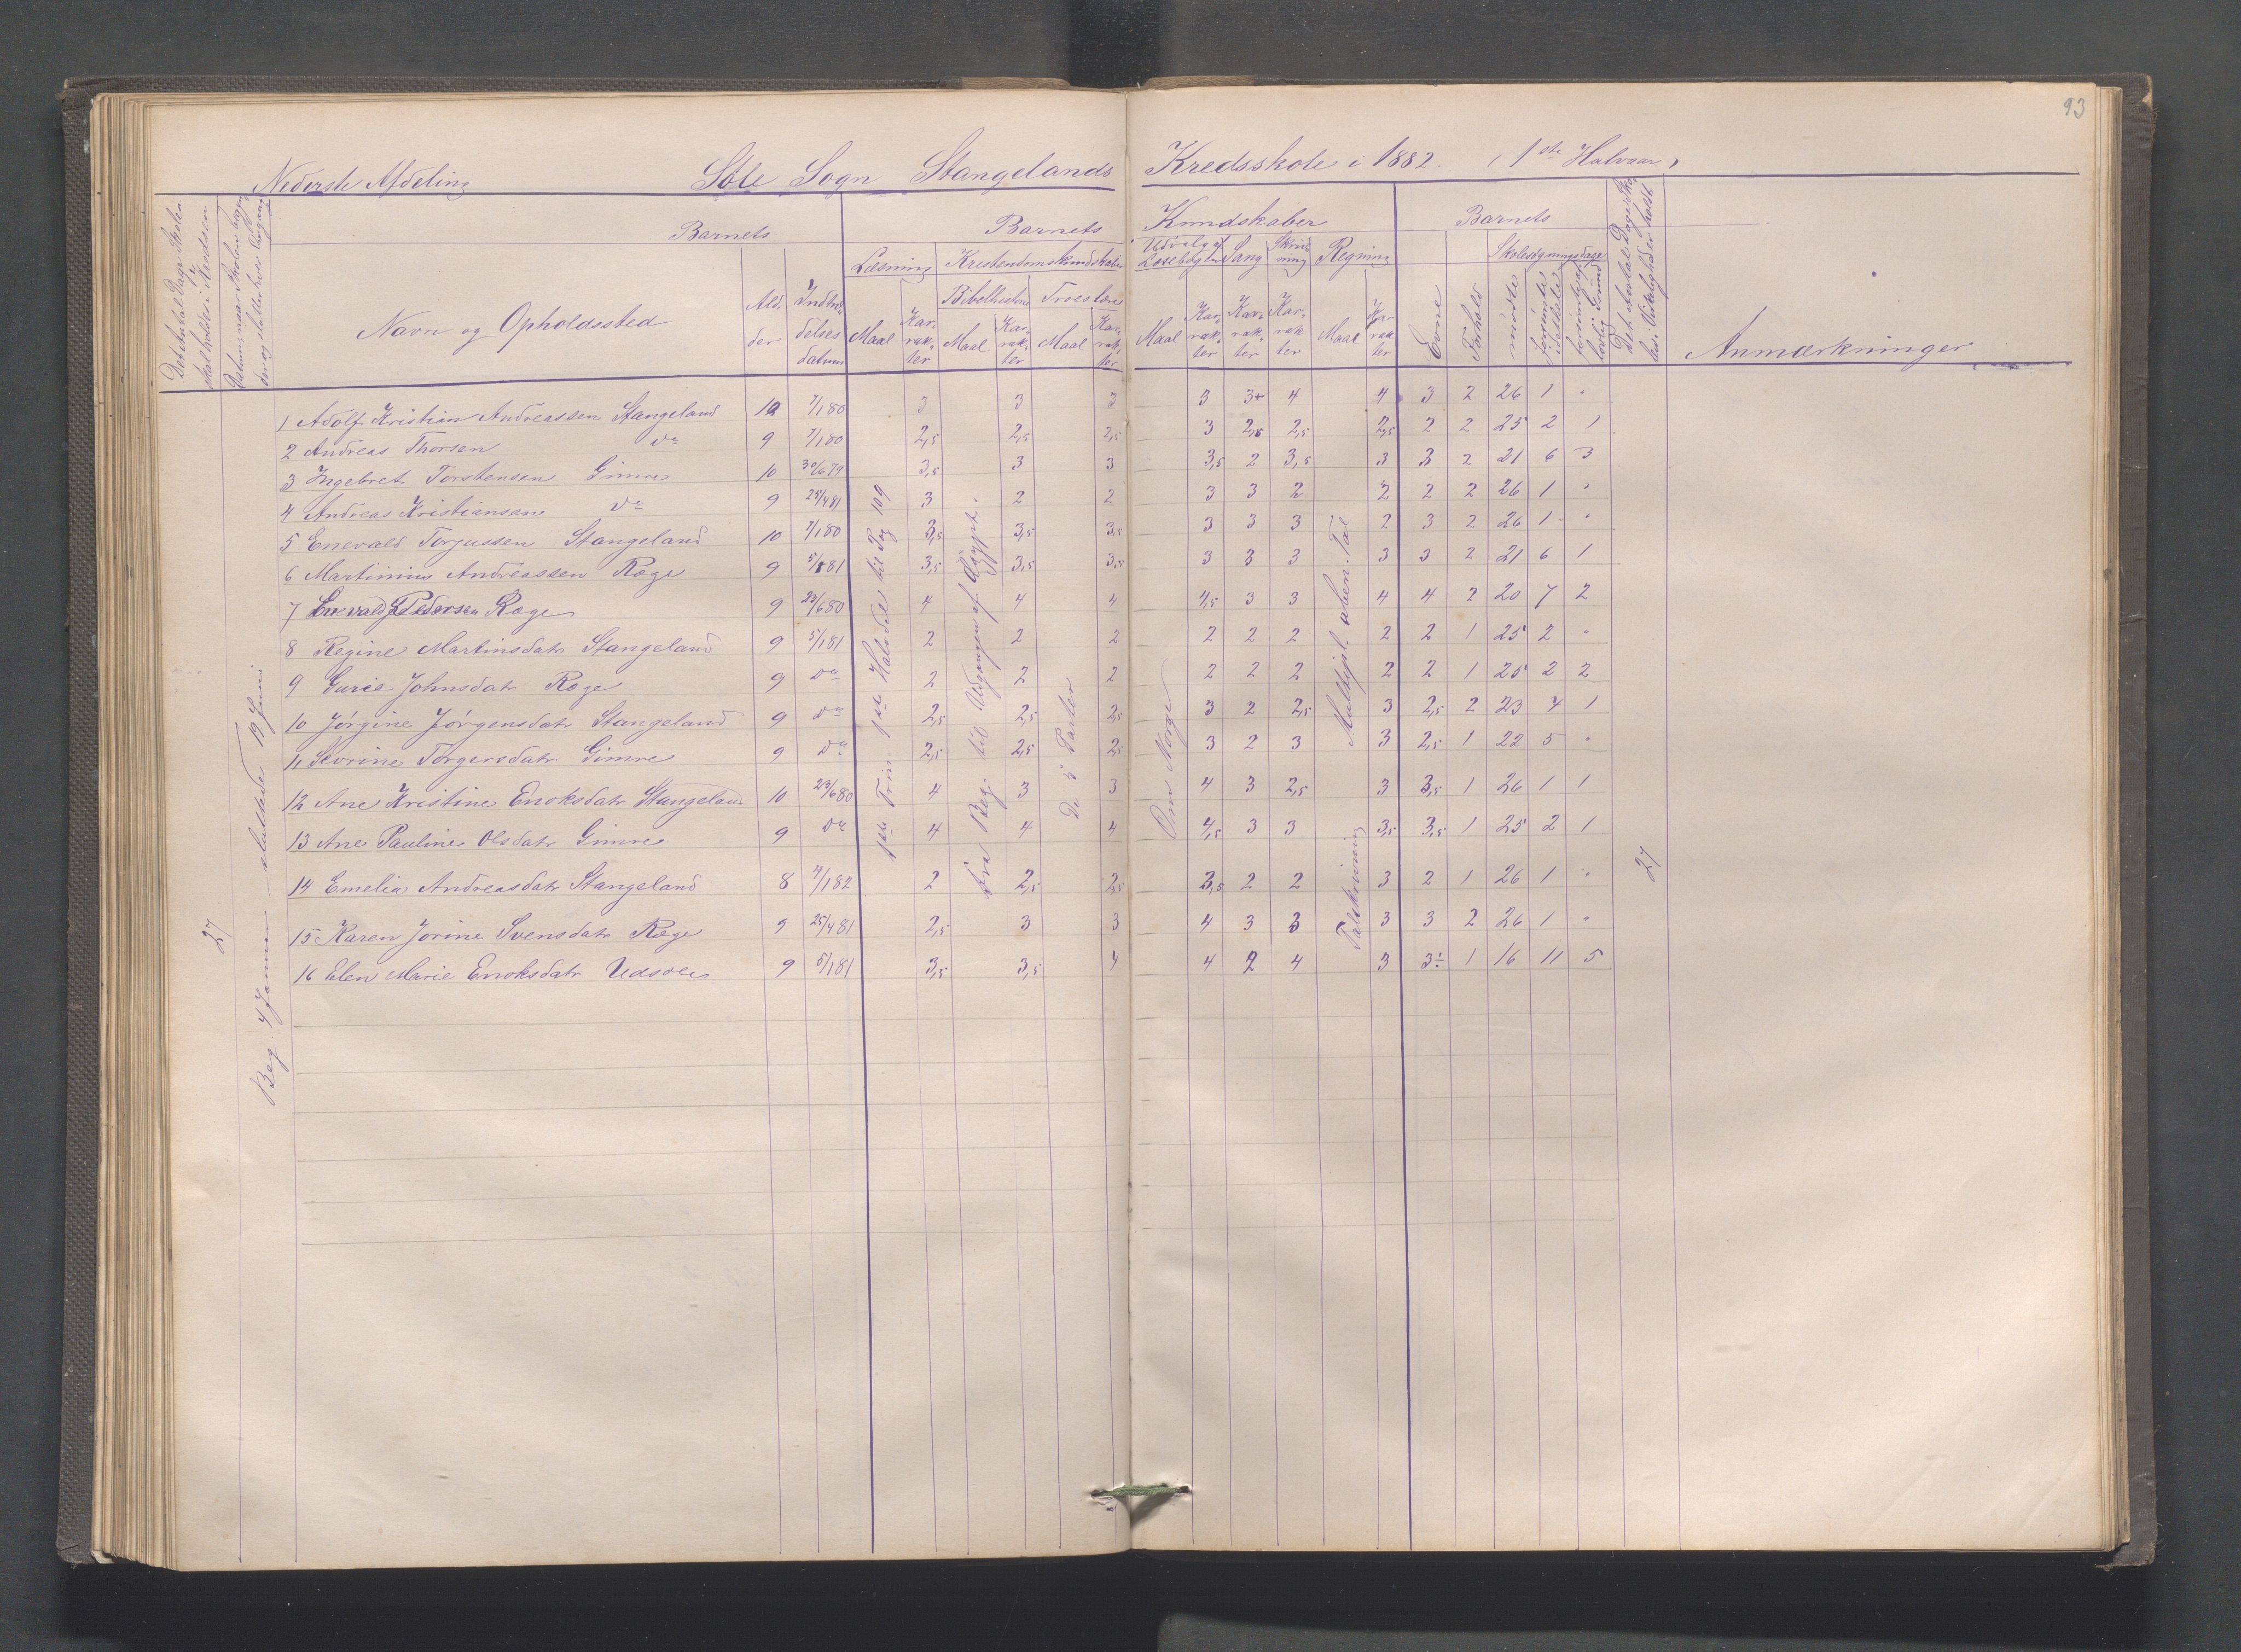 93
Nederste Afdeling Sole Sogn Stangelands Kredsskole i 1882. (1ste Halvaar)
Det Antal Dage Skolen skal holdes i Kredsen
Datum, naar Skolen begyndes og slutter hver Omgang
Barnets
Navn og Opholdssted
Alder
Indtrædelsesdatum
Barnets Kundskaber
Læsning Kristendomskundskaber
Bibelhistorie Troeslære
Maal Karakter Maal Karakter Maal Karakter
Udvalg af Læsebogen Sang Skrivning Regning
Maal Karakter Karakter Karakter Maal Karakter
Barnets
Evne Forhold
Skolesøgningsdage
mødte forsømte i det hele forsømte af lovlig Grund
Det Antal Dage Skolen i Virkeligheden holdt
Anmærkninger
1 Adolf Kristian Andreassen Stangeland 10 7/1 80 3 3 3 3 3+ 4 4 3 2 26 1 "
2 Andreas Thorsen do 9 7/1 80 2,5 2,5 2,5 3 2,5 2,5 2,5 2 2 25 2 1
3 Ingebret Torstensen Gimre 10 30/6 79 3,5 3 3 3,5 2 3,5 3 3 2 21 6 3
4 Andreas Kristiansen do 9 25/4 81 3 2 2 3 3 2 2 2 2 26 1 "
5 Enevald Torjussen Stangeland 10 7/1 80 3,5 3,5 3,5 3 3 3 2 3 2 26 1 "
6 Martinius Andreassen Ræge 9 5/1 81 3,5 3,5 3,5 3 3 3 3 3 2 21 6 1
7 Enevald G Pedersen Ræge 9 23/6 80 4 4 4 4,5 3 3 4 4 2 20 7 2
8 Regine Martinsdatr Stangeland 9 5/1 81 2 2 2 2 2 2 2 2 1 25 2 "
9 Gurie Johnsdatr Ræge 9 do 2 2 2 2 2 2 2 2 1 25 2 2
10 Jørgine Jørgensdatr Stangeland 9 do 2,5 2,5 2,5 3 2 2,5 3 2,5 2 23 4 1
11 Severine Torgersdatr Gimre 9 do 2,5 2,5 2,5 3 2 3 3 2,5 1 22 5 "
12 Ane Kristine Enoksdatr Stangeland 10 23/6 80 4 3 3 4 3 2,5 3 3,5 1 26 1 1
13 Ane Pauline Olsdatr Gimre 9 do 4 4 4 4,5 3 3 3,5 3,5 1 25 2 1
14 Emelia Andreasdatr Stangeland 8 4/1 82 2 2,5 2,5 3,5 2 2 3 2 1 26 1 "
15 Karen Jorine Svensdatr Ræge 9 25/4 81 2,5 3 3 4 3 3 3 3 2 26 1 "
16 Elen Marie Enoksdatr Udsole 9 5/1 81 3,5 3,5 4 4 2 4 3 3÷ 1 16 11 5
27
Beg. 4 Januar sluttede 19 Juni
1ste Trin 1ste Halvdel til Pag 109
Fra Beg. til Udgangen af Ægypt.
De 5 Parter
Om Norge
Talskrivning Multipl. uben. Tal
27